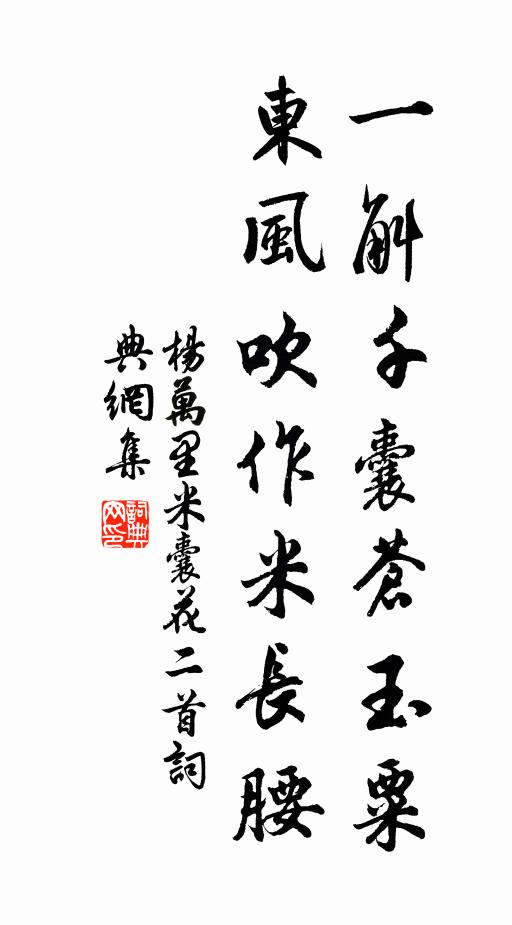 一斛千囊蒼玉粟
東風吹作米長腰
楊萬里米囊花二首詞
典網集
詞典网印